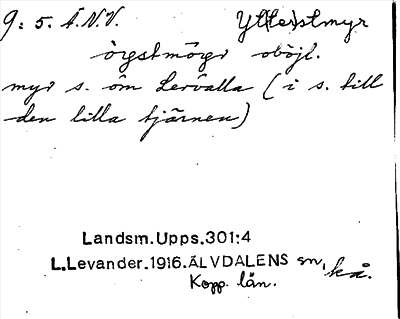 9: 5. Ä.N.V. Yt(te)stmyr
òrgstmögr oböjl.
myr s. om Lervalla (i s. till
den lilla tjärnen)
Landsm.Upps.301:4
L.Levander.1916.ÄLVDALENS sn, kå.
Kopp. län.